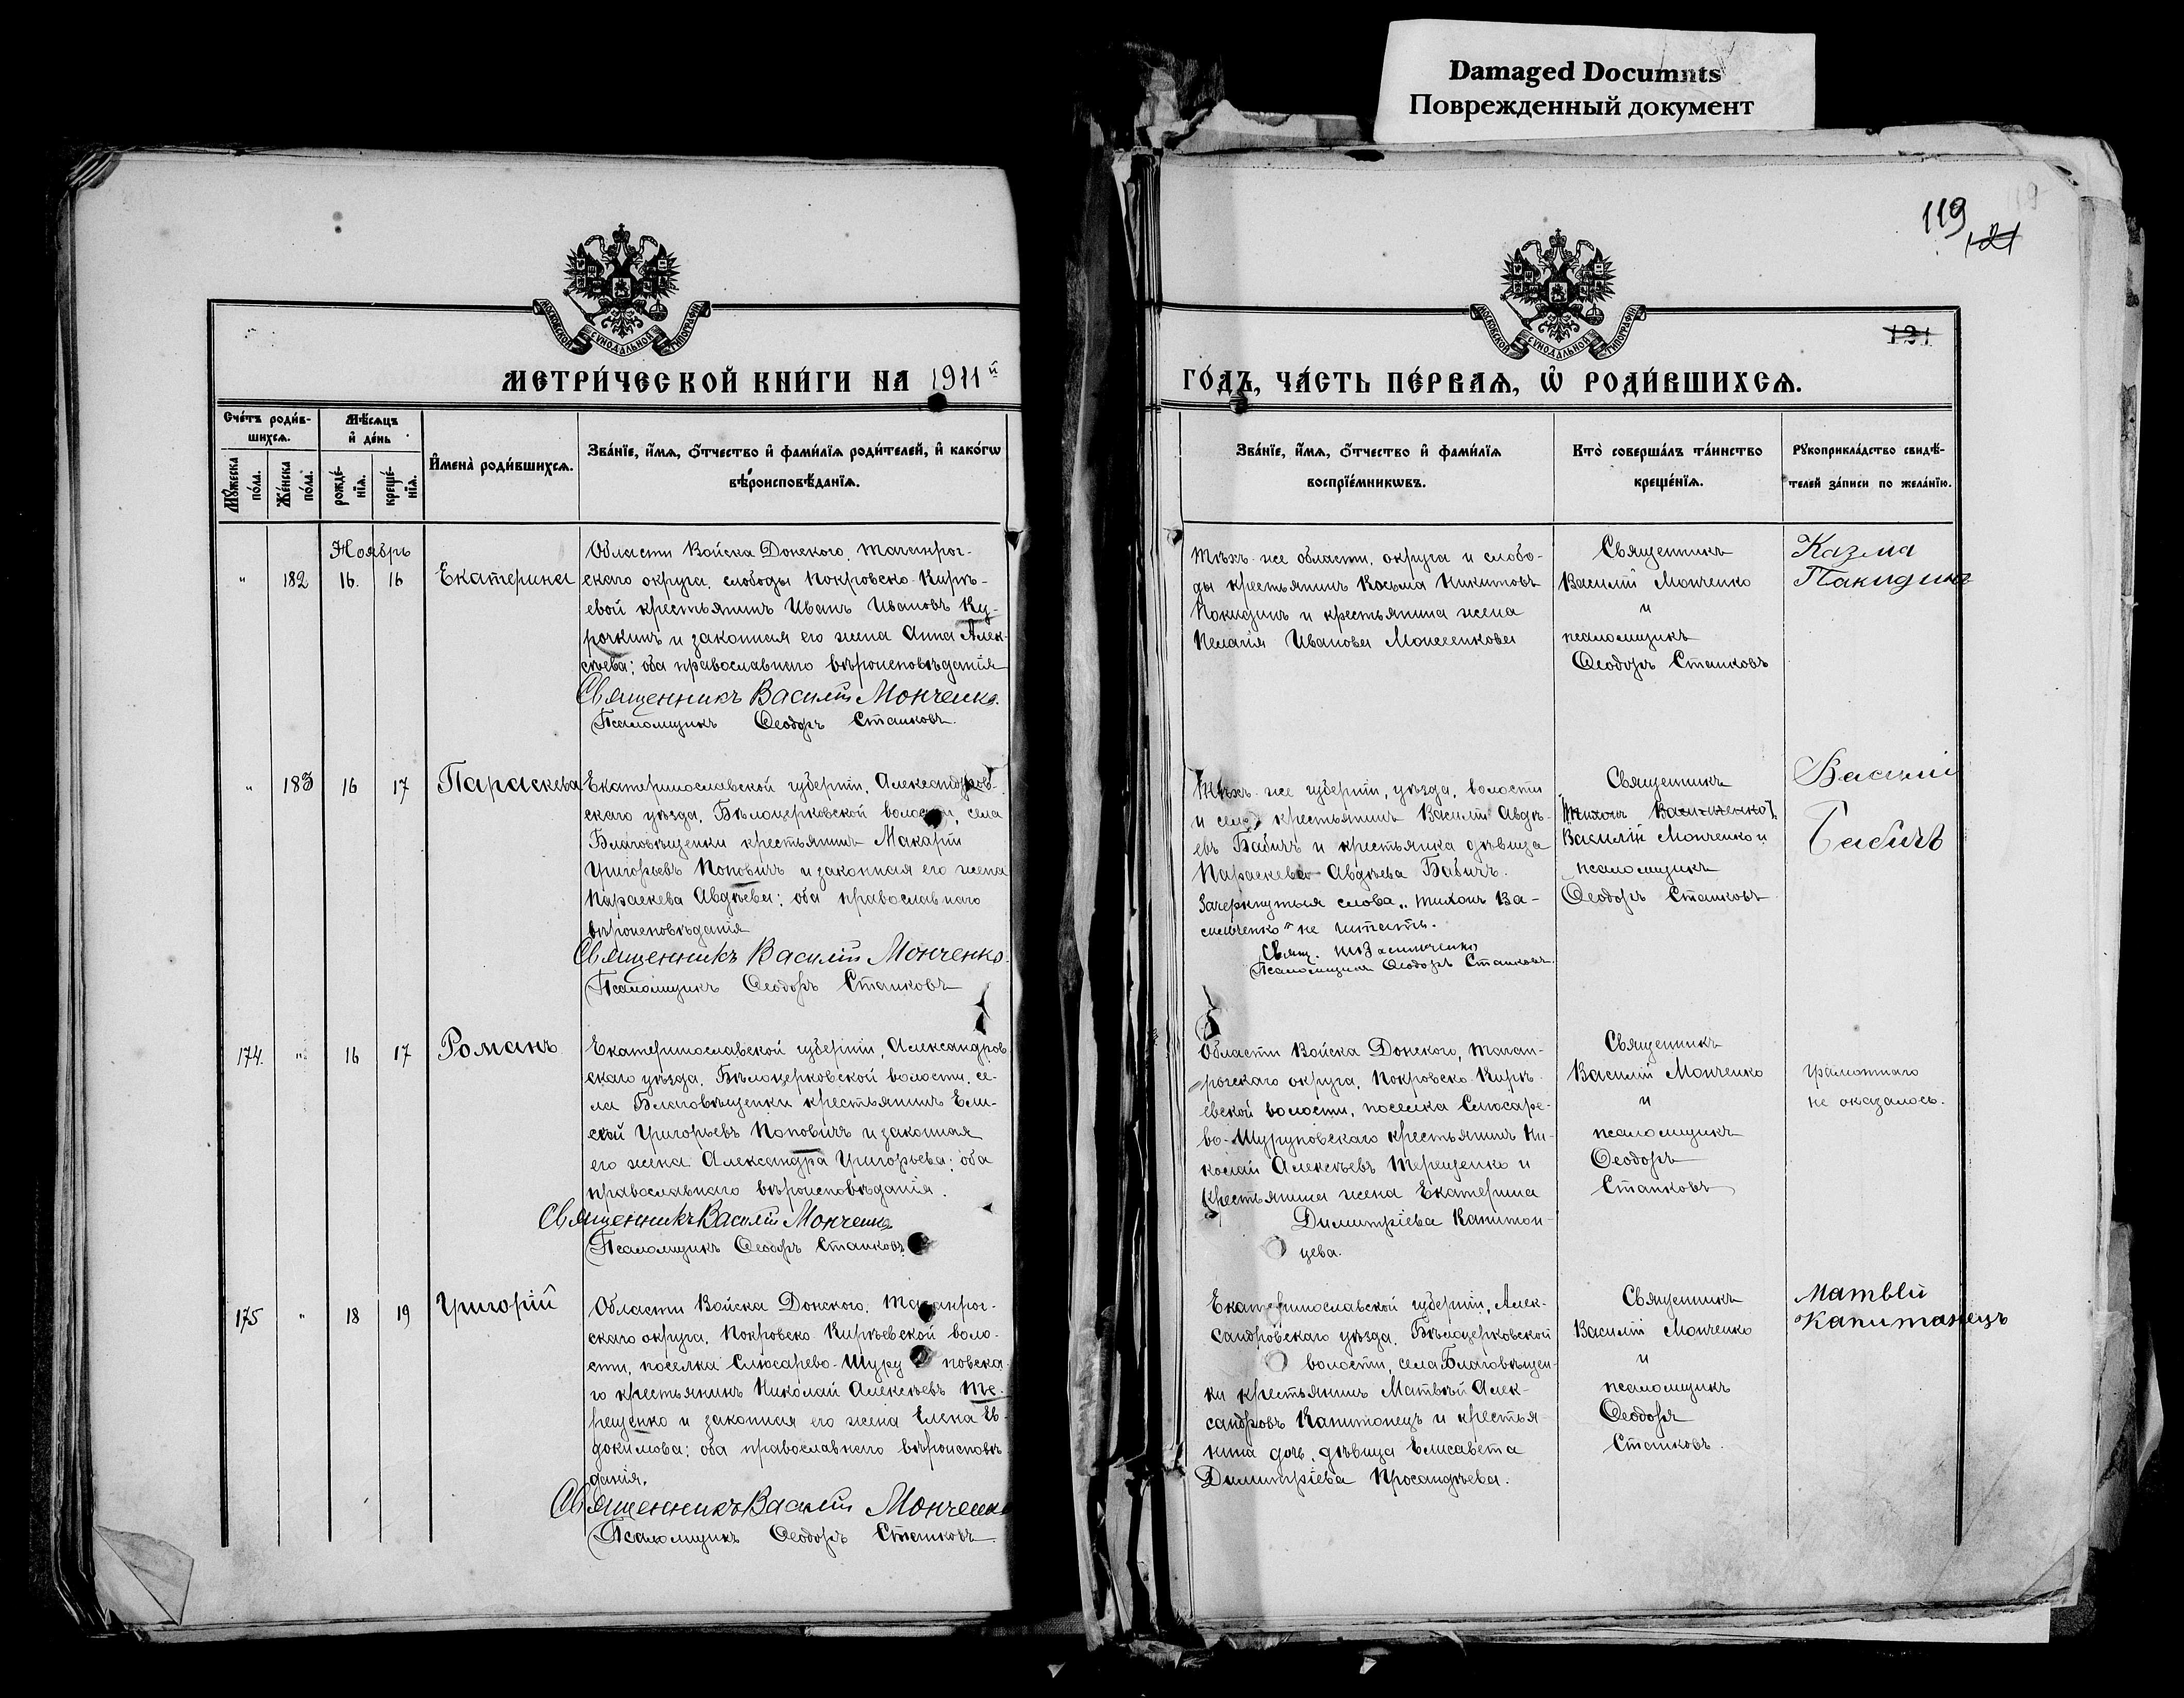 Damaged Documnts
Поврежденный документ
119
121
121
МОСКОВСКОЙ СѴНОДАЛЬНОЙ ТИПОГРАФІИ
МОСКОВСКОЙ СѴНОДАЛЬНОЙ ТИПОГРАФІИ
МЕТРИ́ЧЕСКОЙ КНИ́ГИ НА 1911й
ГО́ДЪ, ЧА́СТЬ ПЕ́РВАѦ, Ѡ҆ РОДИ́ВШИХСѦ.
Сче́тъ роди́в-
шихсѧ.
Мꙋ́жеска по́ла.
Же́нска по́ла.
Мѣ́сѧцъ
и҆ де́нь
рожде́-
нїѧ.
креще́-
нїѧ.
И҆мена̀ роди́вшихсѧ.
Зва́нїе, и҆́мѧ, ѻ҆́тчество и҆ фами́лїѧ роди́телей, и҆ како́гѡ
вѣроисповѣ́данїѧ.
Зва́нїе, и҆́мѧ, ѻ҆́тчество и҆ фами́лїѧ
воспрїе́мникѡвъ.
Кто̀ соверша́лъ та́инство
креще́нїѧ.
Рꙋкоприкла́дство свидѣ́-
телей за́писи по жела́нїю.
Ноябрь
" 182 16. 16 Екатерина
Области Войска Донского, Таганрог-
скаго округа, слободы Покровско-Кирѣ-
евой крестьянинъ Иванъ Ивановъ Ку-
рочкинъ и законная его жена Анна Алек-
сѣева; оба православнаго вѣроисповѣданія
Священникъ Василій Монченко.
Псаломщикъ Ѳеодоръ Сташковъ.
Тѣхъ-же области, округа и слобо-
ды крестьянинъ Косьма Никитовъ
Покидинъ и крестьянина жена
Пелагія Иванова Моисеенкова
Священникъ
Василій Монченко
и
псаломщикъ
Ѳеодоръ Сташковъ
Казма
Пакидинъ
" 183 16 17 Параскева
Екатеринославской губерніи, Александров-
скаго уѣзда, Бѣлоцерковской волости, села
Благовѣщенки крестьянинъ Макарій
Григорьевъ Поповичъ и законная его жена
Параскева Авдѣева; оба православнаго
вѣроисповѣданія
Священникъ Василій Монченко.
Псаломщикъ Ѳеодоръ Сташковъ
Тѣхъ-же губерніи, уѣзда, волости
и села, крестьянинъ Василій Авдѣ-
евъ Бабичъ и крестьянка дѣвица
Параскева Авдѣева Бабичъ.
Зачеркнутыя слова „Тихонъ Ва-
сильченко" не читать.
Свящ.
Псаломщикъ Ѳеодоръ Сташковъ.
Священникъ
Тихонъ Васильченко
Василій Монченко и
псаломщикъ
Ѳеодоръ Сташковъ
Василій
Бабичъ
174. " 16 17 Романъ
Екатеринославской губерніи, Александров-
скаго уѣзда, Бѣлоцерковской волости, се-
ла Благовѣщенки крестьянинъ Ели-
сей Григорьевъ Поповичъ и законная
его жена Александра Григорьева; оба
православнаго вѣроисповѣданія.
Священникъ Василій Монченко
Псаломщикъ Ѳеодоръ Сташковъ
Области Войска Донского, Таган-
рогскаго округа, Покровско-Кирѣ-
евской волости, поселка Слюсаре-
во-Шуруповскаго крестьянинъ Ни-
колай Алексѣевъ Терещенко и
крестьянина жена Екатерина
Димитріева Капитон-
цева.
Священникъ
Василій Монченко
и
псаломщикъ
Ѳеодоръ
Сташковъ
Грамотнаго
не оказалось.
175 " 18 19 Григорій
Области Войска Донского, Таганрог-
скаго округа, Покровско-Кирѣевской воло-
сти, поселка Слюсарево-Шуруповска-
го крестьянинъ Николай Алексѣевъ Те-
рещенко и законная его жена Елена Ев-
докимова; оба православнаго вѣроисповѣ-
данія.
Священникъ Василій Монченко
Псаломщикъ Ѳеодоръ Сташковъ.
Екатеринославской губерніи, Алек-
сандровскаго уѣзда, Бѣлоцерковской
волости, села Благовѣщен-
ки крестьянинъ Матвѣй Алек-
сандровъ Капитонецъ и крестья-
нина дочь, дѣвица Елисавета
Димитріева Просандѣева.
Священникъ
Василій Монченко
и
псаломщикъ
Ѳеодоръ
Сташковъ.
Матвѣй
Капитанецъ